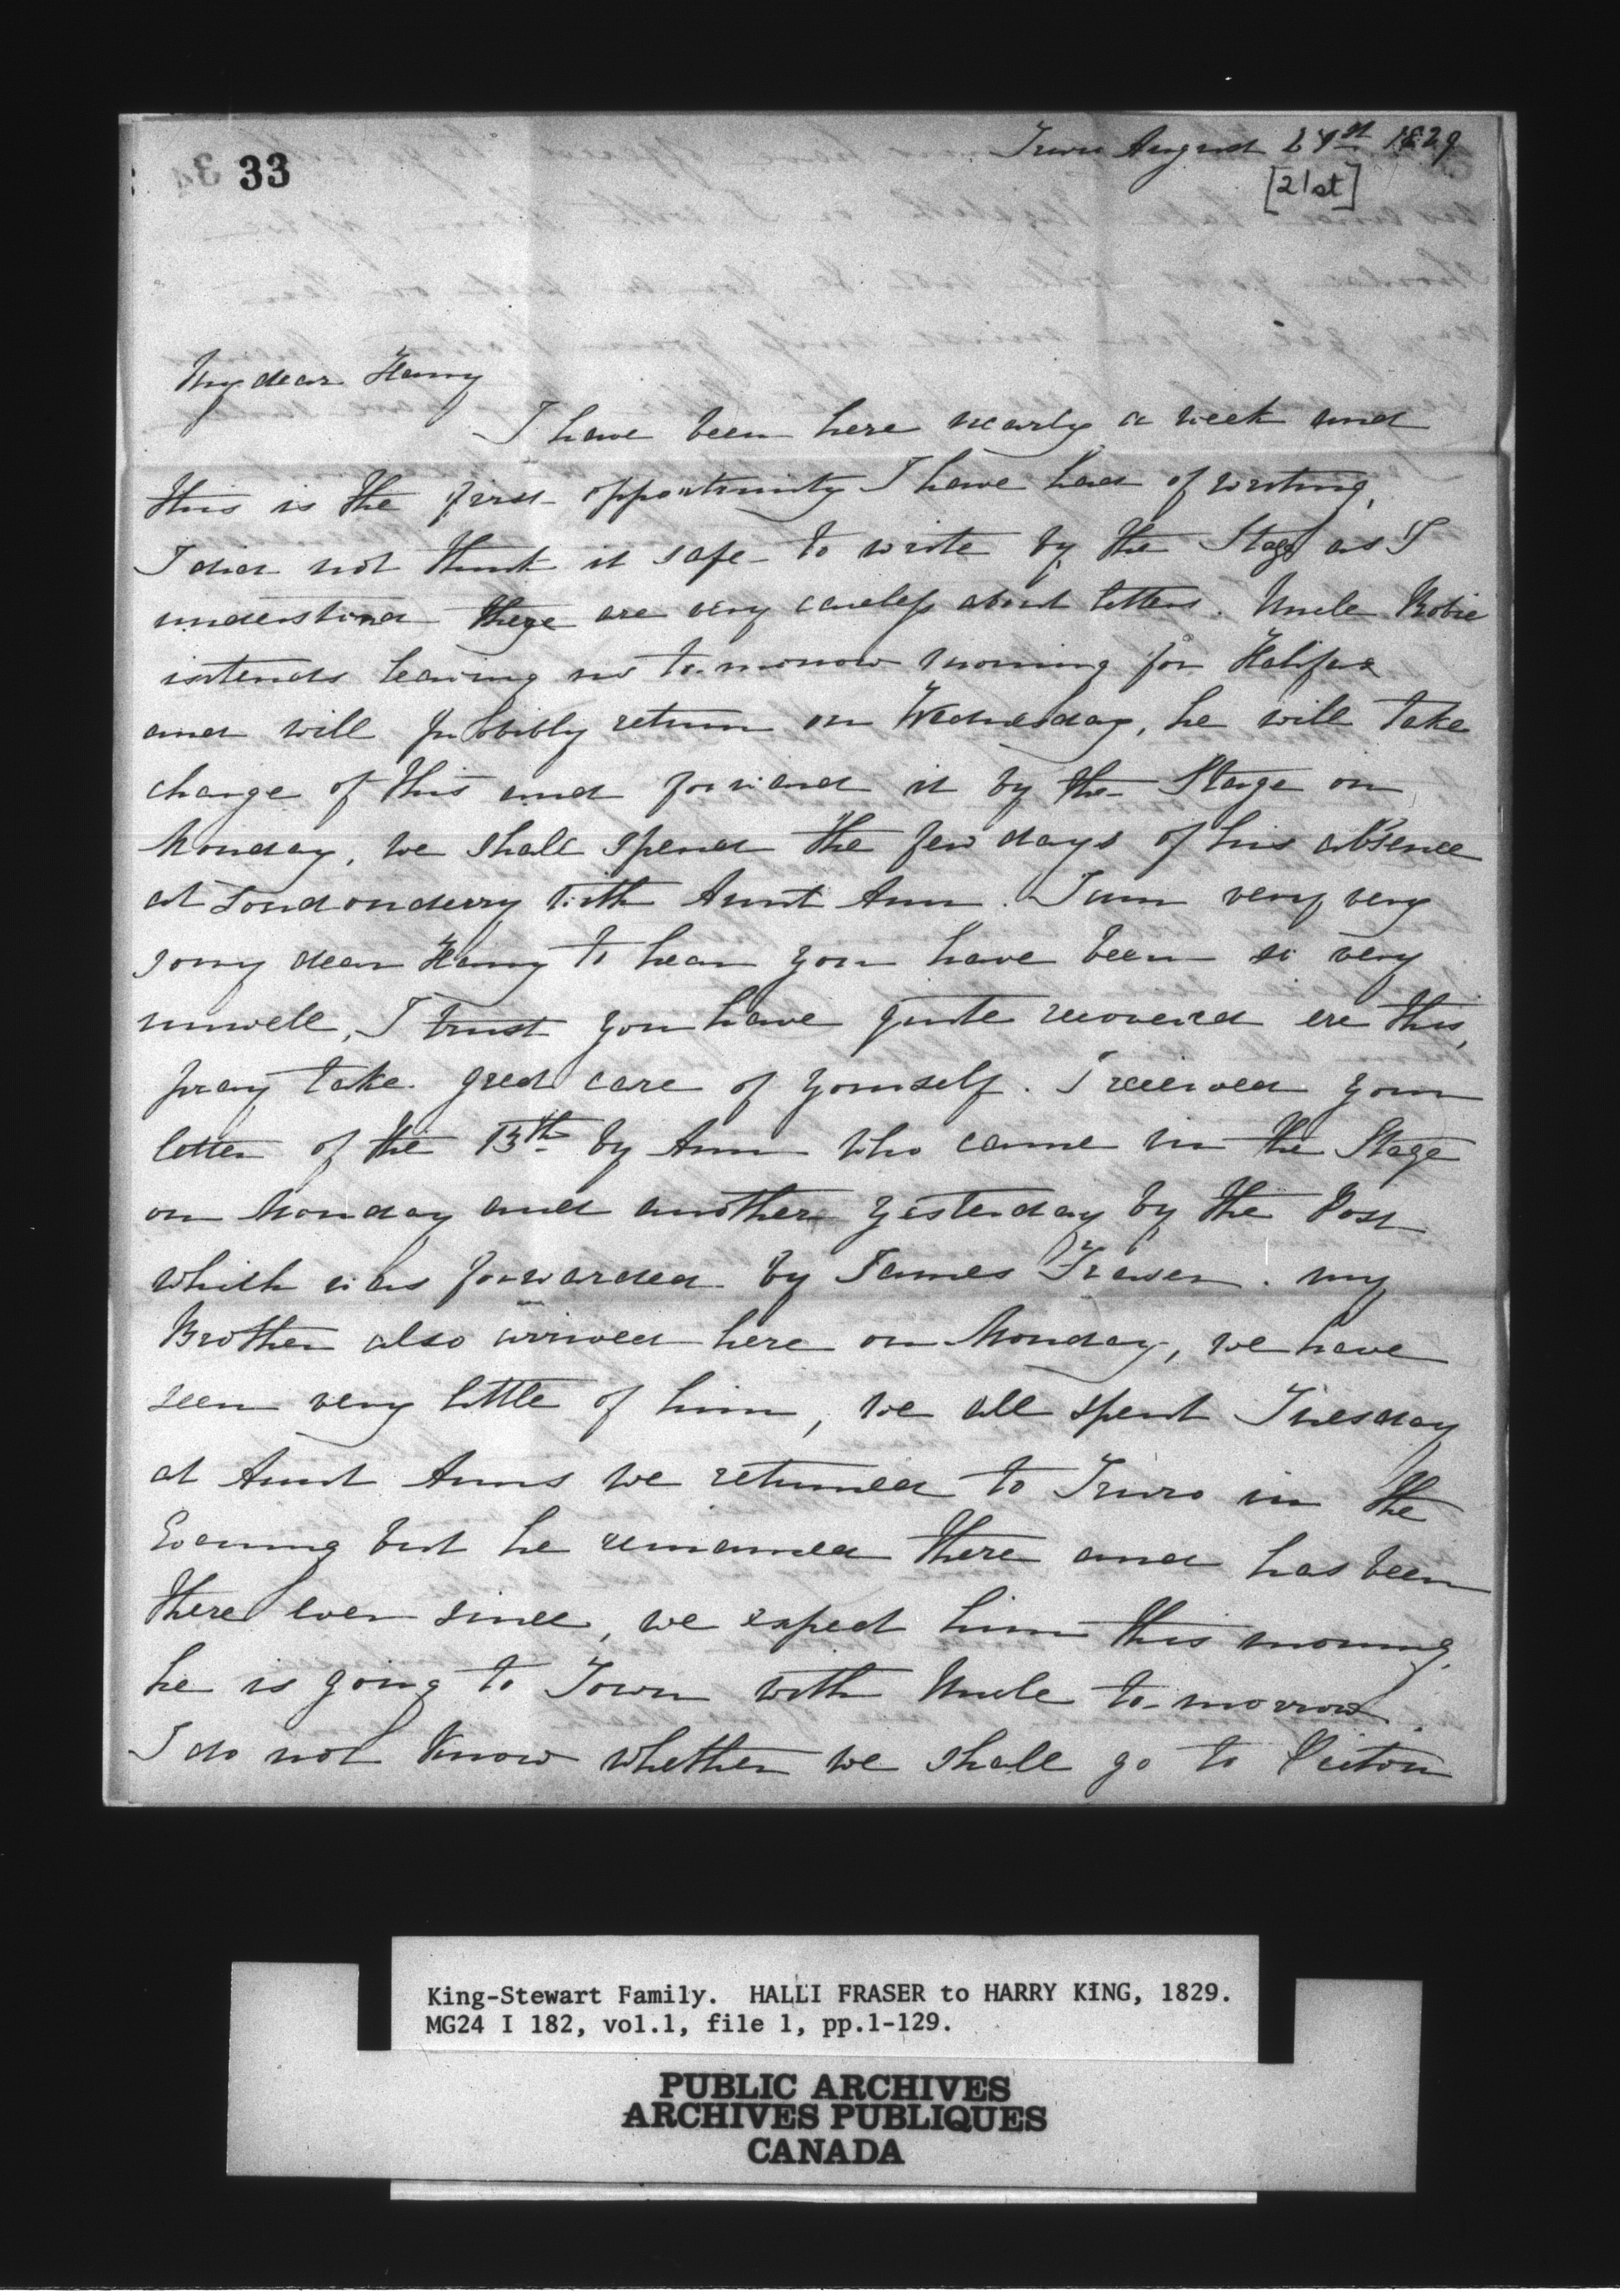 33
Truro August 21st 1829
[21st]
My dear Harry
I have been here nearly a week and
this is the first opportunity I have had of writing,
I did not think it safe to write by the Stage as I
understand there are very careless about letters. Uncle Robie
intends leaving us to-morrow morning for Halifax
and will probibly return on Wednesday, he will take
charge of this and forward it by the Stage on
Monday, we shall spend the few days of his absence
at Londonderry with Aunt Ann. I am very very
sorry dear Harry to hear you have been so very
unwell, I trust you have quite recovered ere this,
pray take great care of yourself. I received your
letter of the 13th by Ann who came in the Stage
on Monday and another yesterday by the Post
which was forwarded by James Fraser. my
Brother also arrived here on Monday, we have
seen very little of him, we all spent Tuesday
at Aunt Anns we returned to Truro in the
Evening but he remained there and has been
there ever since, we expect him this morning,
he is going to Town with Uncle to-morrow.
I do not know whether we shall go to Pictou
King-Stewart Family. HALLI FRASER to HARRY KING, 1829.
MG24 I 182, vol.1, file 1, pp.1-129.
PUBLIC ARCHIVES
ARCHIVES PUBLIQUES
CANADA